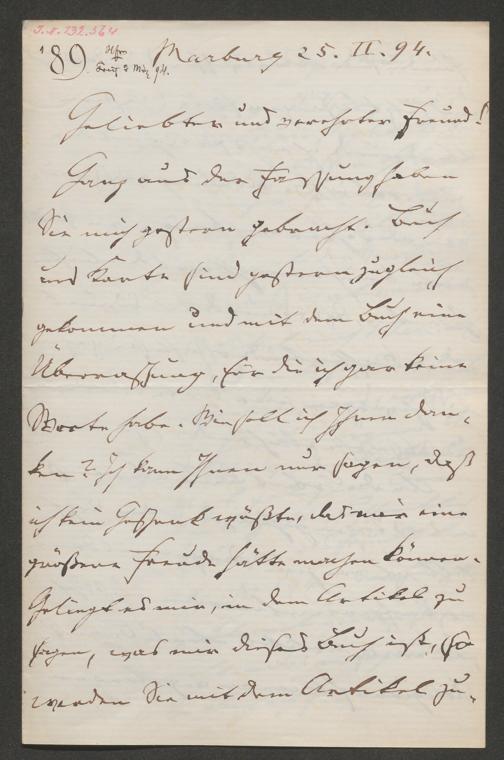 I.N. 232.564
189
Marburg 25. II. 94.
Geliebter und verehrter Freund!
Ganz aus der Fassung haben
Sie mich gestern gebracht. Buch
und Karte sind gestern zugleich
gekommen und mit dem Buch eine
Überraschung, für die ich gar keine
Worte habe. Wie soll ich Ihnen dan-
ken? Ich kann Ihnen nur sagen, daß
ich kein Geschenk wüßte, das mir eine
größere Freude hätte machen können.
Gelingt es mir, in dem Artikel zu
sagen, was mir dieses Buch ist, so
werden Sie mit dem Artikel zu-